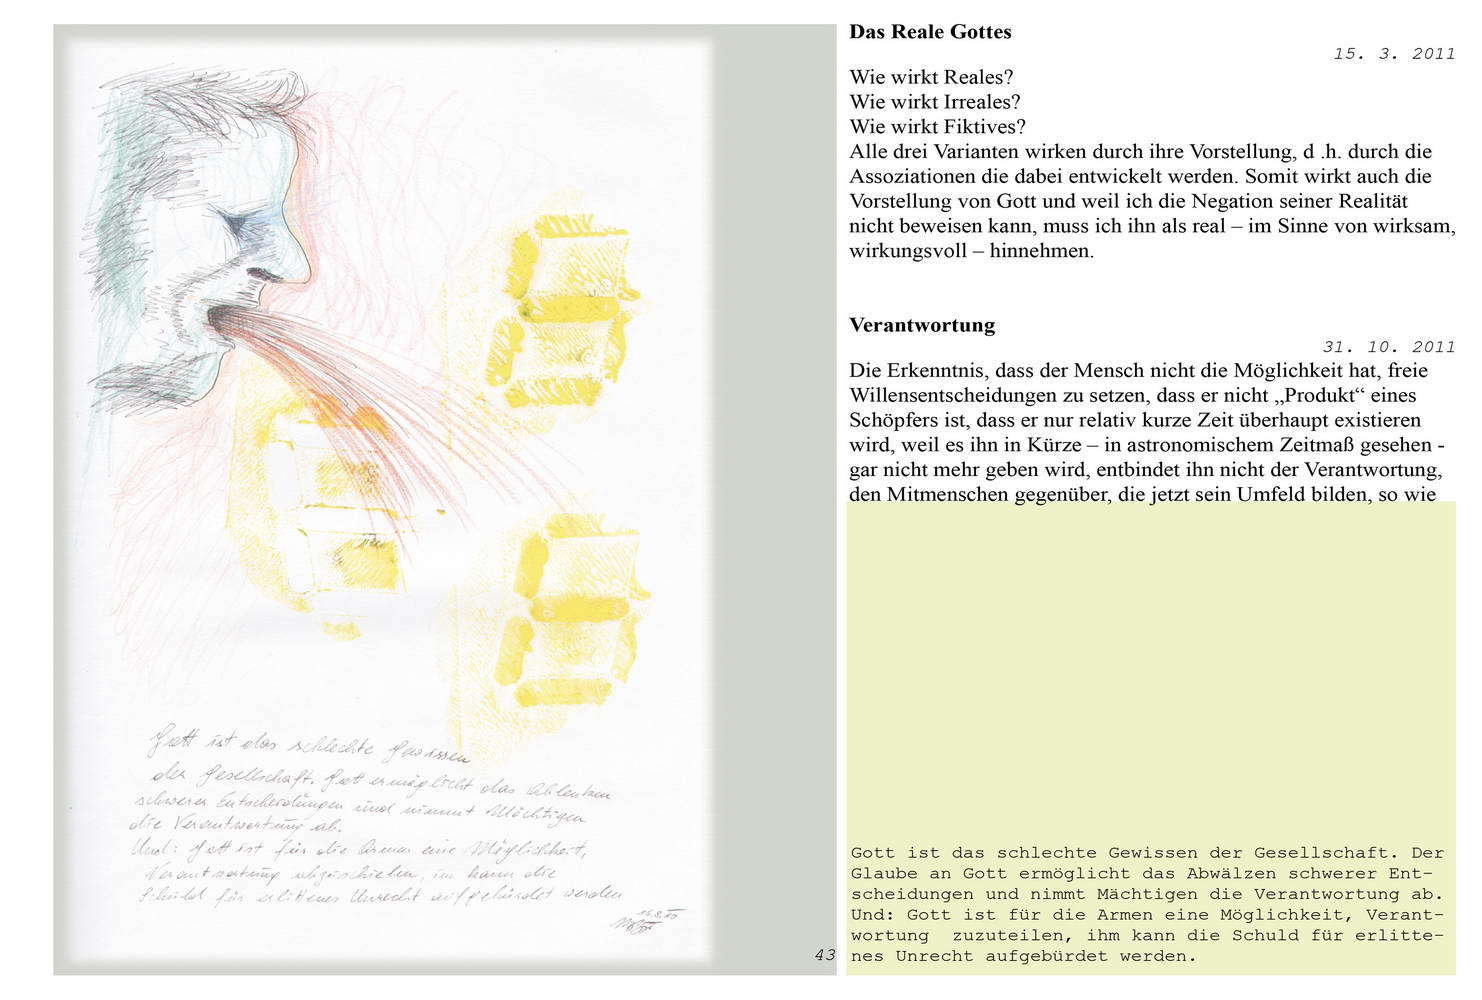 Gott ist das schlechte Gewissen
der Gesellschaft. Gott ermöglicht das Ablenken
schwerer Entscheidungen und nimmt Mächtigen
die Verantwortung ab.
Und: Gott ist für die Armen eine Möglichkeit,
Verantwortung abzuschieben, ihm kann die
Schuld für erlittenes Unrecht aufgebürdet werden
43
Das Reale Gottes
15. 3. 2011
Wie wirkt Reales?
Wie wirkt Irreales?
Wie wirkt Fiktives?
Alle drei Varianten wirken durch ihre Vorstellung, d .h. durch die
Assoziationen die dabei entwickelt werden. Somit wirkt auch die
Vorstellung von Gott und weil ich die Negation seiner Realität
nicht beweisen kann, muss ich ihn als real – im Sinne von wirksam,
wirkungsvoll – hinnehmen.
Verantwortung
31. 10. 2011
Die Erkenntnis, dass der Mensch nicht die Möglichkeit hat, freie
Willensentscheidungen zu setzen, dass er nicht „Produkt“ eines
Schöpfers ist, dass er nur relativ kurze Zeit überhaupt existieren
wird, weil es ihn in Kürze – in astronomischem Zeitmaß gesehen -
gar nicht mehr geben wird, entbindet ihn nicht der Verantwortung,
den Mitmenschen gegenüber, die jetzt sein Umfeld bilden, so wie
Gott ist das schlechte Gewissen der Gesellschaft. Der
Glaube an Gott ermöglicht das Abwälzen schwerer Ent-
scheidungen und nimmt Mächtigen die Verantwortung ab.
Und: Gott ist für die Armen eine Möglichkeit, Verant-
wortung  zuzuteilen, ihm kann die Schuld für erlitte-
nes Unrecht aufgebürdet werden.